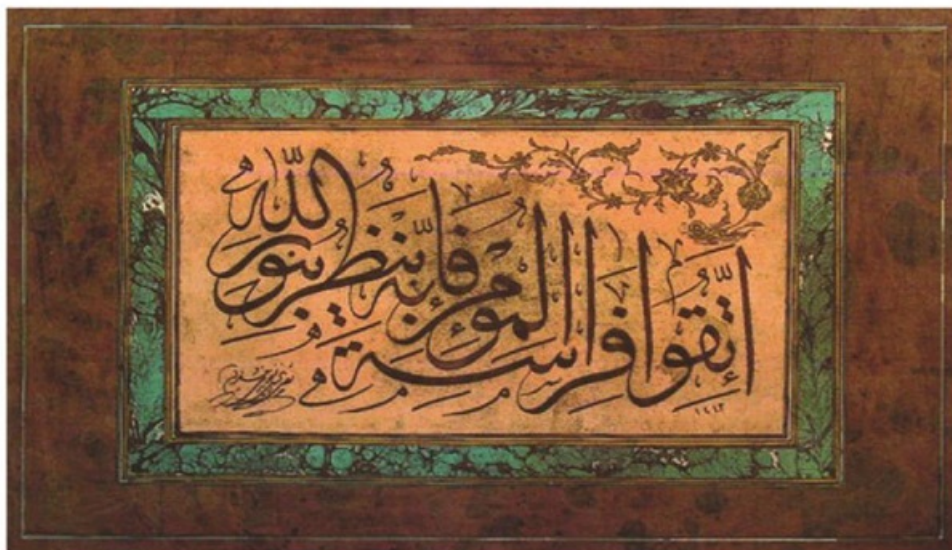 إتقوا فراسة المؤمن فإنه ينظر بنور الله
١٢١٢